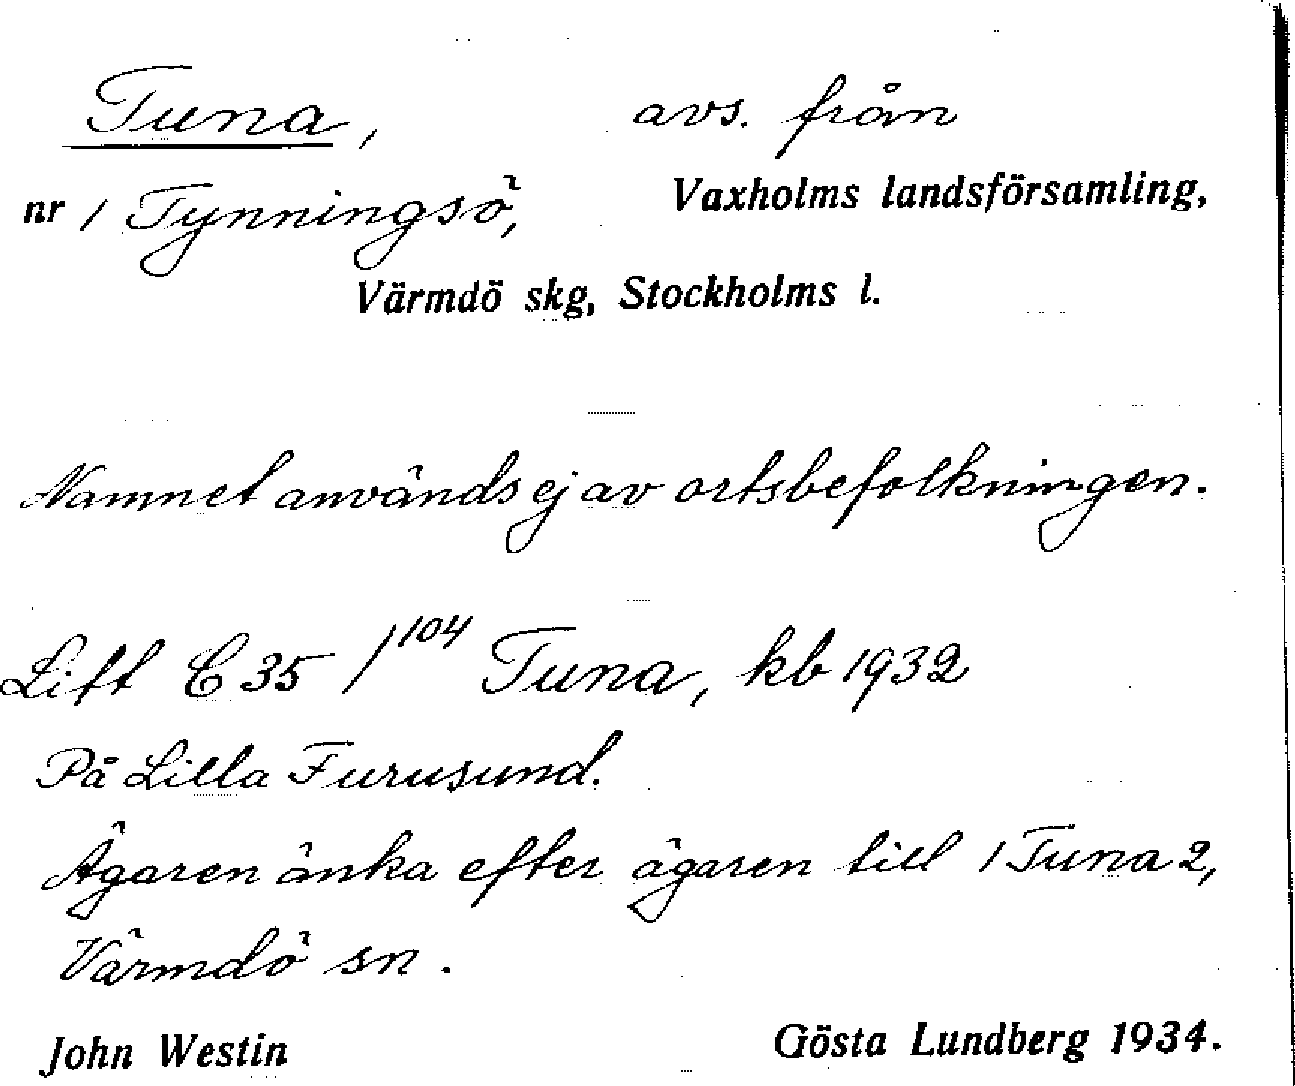 Tuna, avs. från
nr 1 Tynningsö, Vaxholms landsförsamling,
Värmdö skg, Stockholms l.
Namnet används ej av ortsbefolkningen.
Litt C 35 /104 Tuna, kb 1932
På Lilla Furusund.
Ägaren änka efter ägaren till 1 Tuna 2,
Värmdö sn.
John Westin Gösta Lundberg 1934.